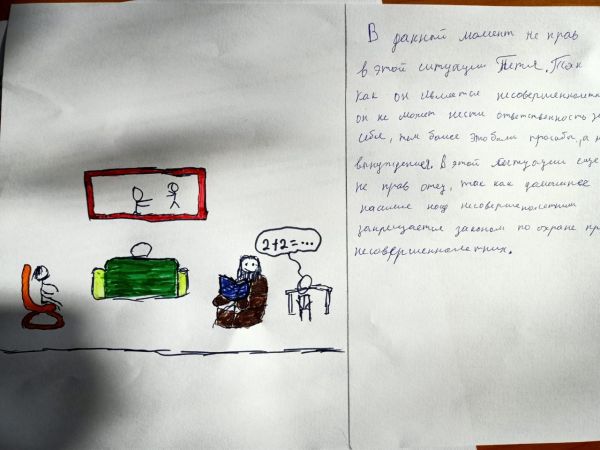 2+2=...
В данной момент не прав
в этой ситуации Петя. Так
как он является несовершеннолетн
он не может нести ответственность за
себя, тем более это были просьба, а н
вынуждения. В этой ситуации еще
не прав отец, так как домашнее
насилие над несовершенолетним
запрещается законом по охране пр
несовершеннолетних.